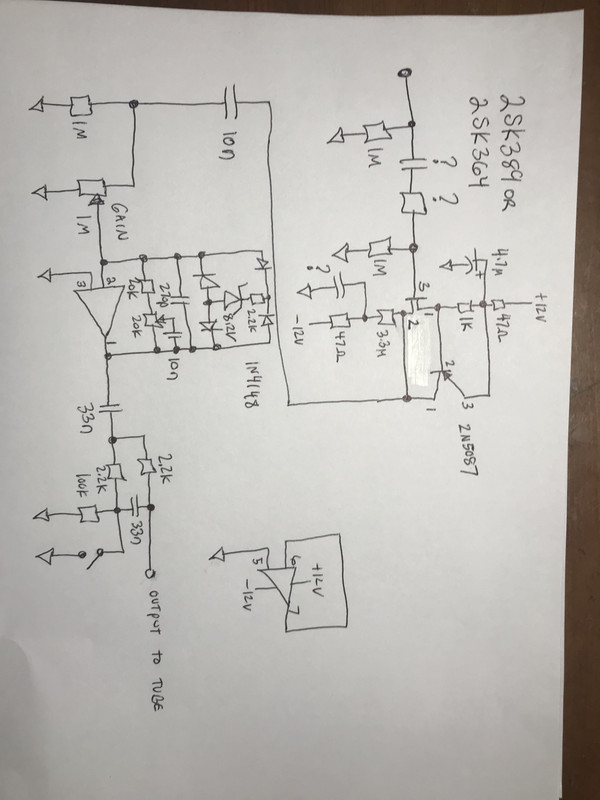 2SK389 OR
2SK364
+12V
4.7µ
47Ω
1K
3
1
2
2
3
1
2N5087
?
?
1M
1M
?
-12V
47Ω
3.3M
10n
1M
GAIN
1M
2
3
1
20K
20K
270p
10n
8.2V
2.2K
1N4148
33n
2.2K
2.2K
100K
33n
OUTPUT TO TUBE
5
6
7
+12V
-12V